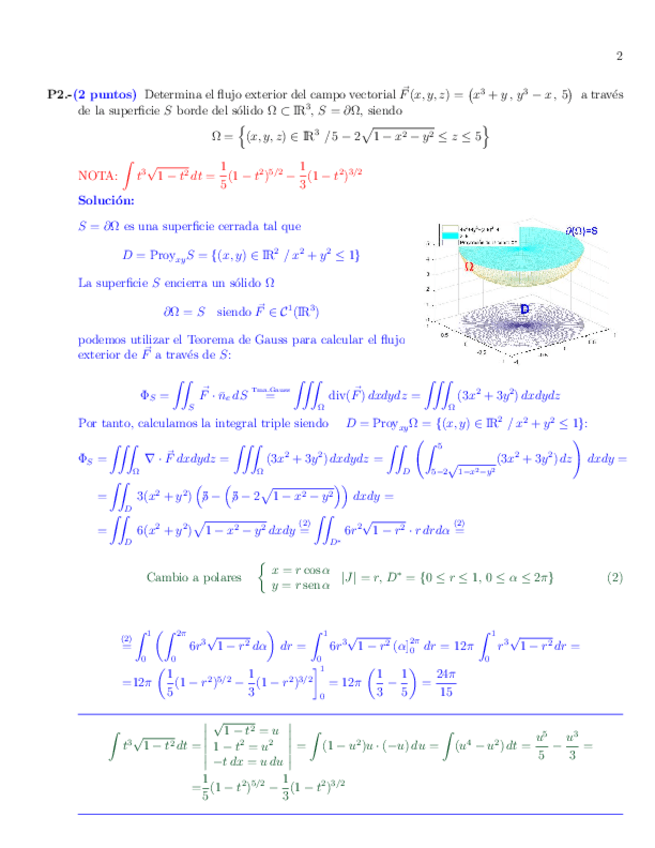 2
P2.-(2 puntos) Determina el flujo exterior del campo vectorial F⃗(x, y, z) = (x³ + y , y³ − x , 5) a través
de la superficie S borde del sólido Ω ⊂ ℝ³, S = ∂Ω, siendo
Ω = {(x, y, z) ∈ ℝ³ / 5 − 2√(1 − x² − y²) ≤ z ≤ 5}
NOTA: ∫ t³√(1 − t²) dt = 1/5 (1 − t²)^{5/2} − 1/3 (1 − t²)^{3/2}
Solución:
S = ∂Ω es una superficie cerrada tal que
D = Proy_{xy}S = {(x, y) ∈ ℝ² / x² + y² ≤ 1}
La superficie S encierra un sólido Ω
∂Ω = S siendo F⃗ ∈ C¹(ℝ³)
podemos utilizar el Teorema de Gauss para calcular el flujo
exterior de F⃗ a través de S:
∂(Ω)=S
Ω
D
Φ_S = ∬_S F⃗ · n̄_e dS = ∭_Ω div(F⃗) dxdydz = ∭_Ω (3x² + 3y²) dxdydz
Por tanto, calculamos la integral triple siendo D = Proy_{xy}Ω = {(x, y) ∈ ℝ² / x² + y² ≤ 1}:
Φ_S = ∭_Ω ∇ · F⃗ dxdydz = ∭_Ω (3x² + 3y²) dxdydz = ∬_D (∫_{5−2√(1−x²−y²)}^{5} (3x² + 3y²) dz) dxdy =
= ∬_D 3(x² + y²) (5 − (5 − 2√(1 − x² − y²))) dxdy =
= ∬_D 6(x² + y²)√(1 − x² − y²) dxdy (2)= ∬_{D*} 6r²√(1 − r²) · r drdα (2)=
Cambio a polares { x = r cos α y = r sen α |J| = r, D* = {0 ≤ r ≤ 1, 0 ≤ α ≤ 2π} (2)
(2)= ∫_0^1 (∫_0^{2π} 6r³√(1 − r²) dα) dr = ∫_0^1 6r³√(1 − r²) (α]_0^{2π} dr = 12π ∫_0^1 r³√(1 − r²) dr =
=12π (1/5 (1 − r²)^{5/2} − 1/3 (1 − r²)^{3/2}]_0^1 = 12π (1/3 − 1/5) = 24π/15
∫ t³√(1 − t²) dt = | √(1 − t²) = u 1 − t² = u² −t dx = u du | = ∫(1 − u²)u · (−u) du = ∫(u⁴ − u²) dt = u⁵/5 − u³/3 =
=1/5 (1 − t²)^{5/2} − 1/3 (1 − t²)^{3/2}